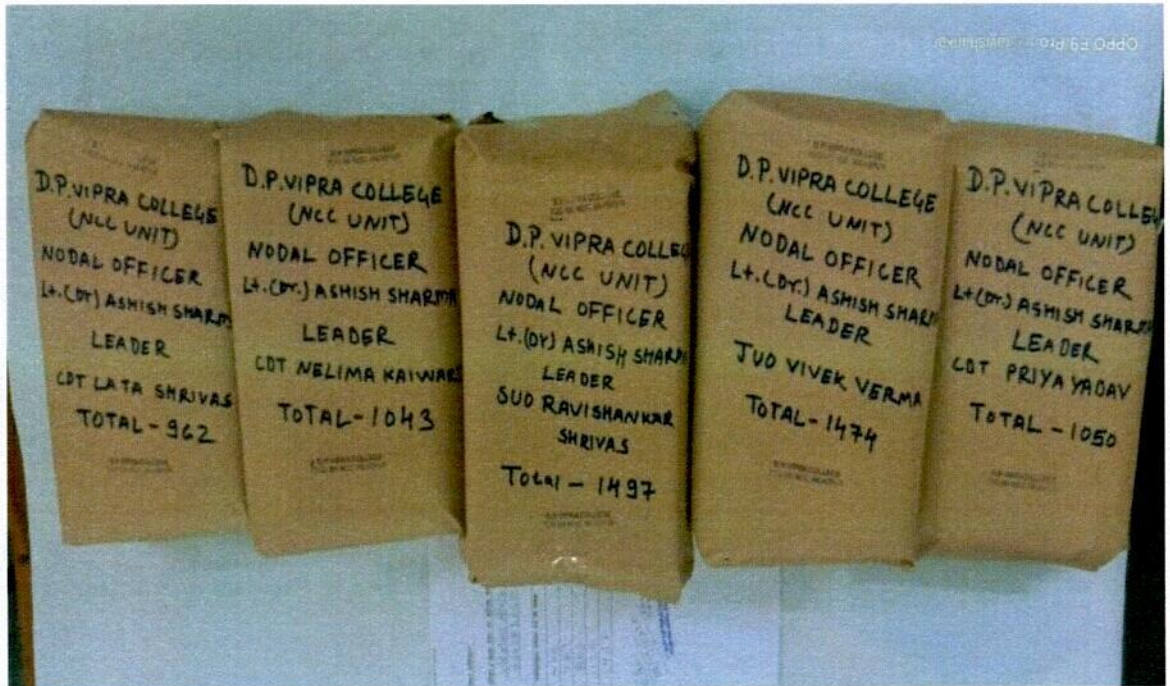 D.P.VIPRA COLLEGE
(NCC UNIT)
NODAL OFFICER
Lt.(Dr) ASHISH SHARMA
LEADER
CDT LATA SHRIVAS
TOTAL - 962
D.P.VIPRA COLLEGE
(NCC UNIT)
NODAL OFFICER
Lt.(Dr.) ASHISH SHARMA
LEADER
CDT NELIMA KAIWAR
TOTAL - 1043
D.P. VIPRA COLLEGE
(NCC UNIT)
NODAL OFFICER
Lt.(Dr) ASHISH SHARMA
LEADER
SUO RAVISHANKAR
SHRIVAS
Total - 1497
D.P. VIPRA COLLEGE
(NCC UNIT)
NODAL OFFICER
Lt.(Dr.) ASHISH SHARMA
LEADER
JUO VIVEK VERMA
TOTAL - 1474
D.P. VIPRA COLLEG
(NCC UNIT)
NODAL OFFICER
Lt.(Dr) ASHISH SHARMA
LEADER
CDT PRIYA YADAV
TOTAL - 1050
OPPO F9 Pro